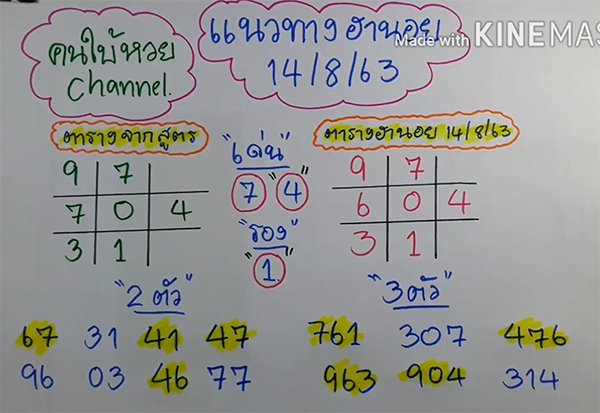 คนใบ้หวย
Channel.
แนวทางฮานอย
14/8/63
Made with KINEMAS
ตารางจากสูตร
9 7
7 0 4
3 1
"เด่น"
7 "4"
"รอง"
"1"
ตารางฮานอย 14/8/63
9 7
6 0 4
3 1
"2 ตัว"
67 31 41 47
96 03 46 77
"3 ตัว"
761 307 476
963 904 314